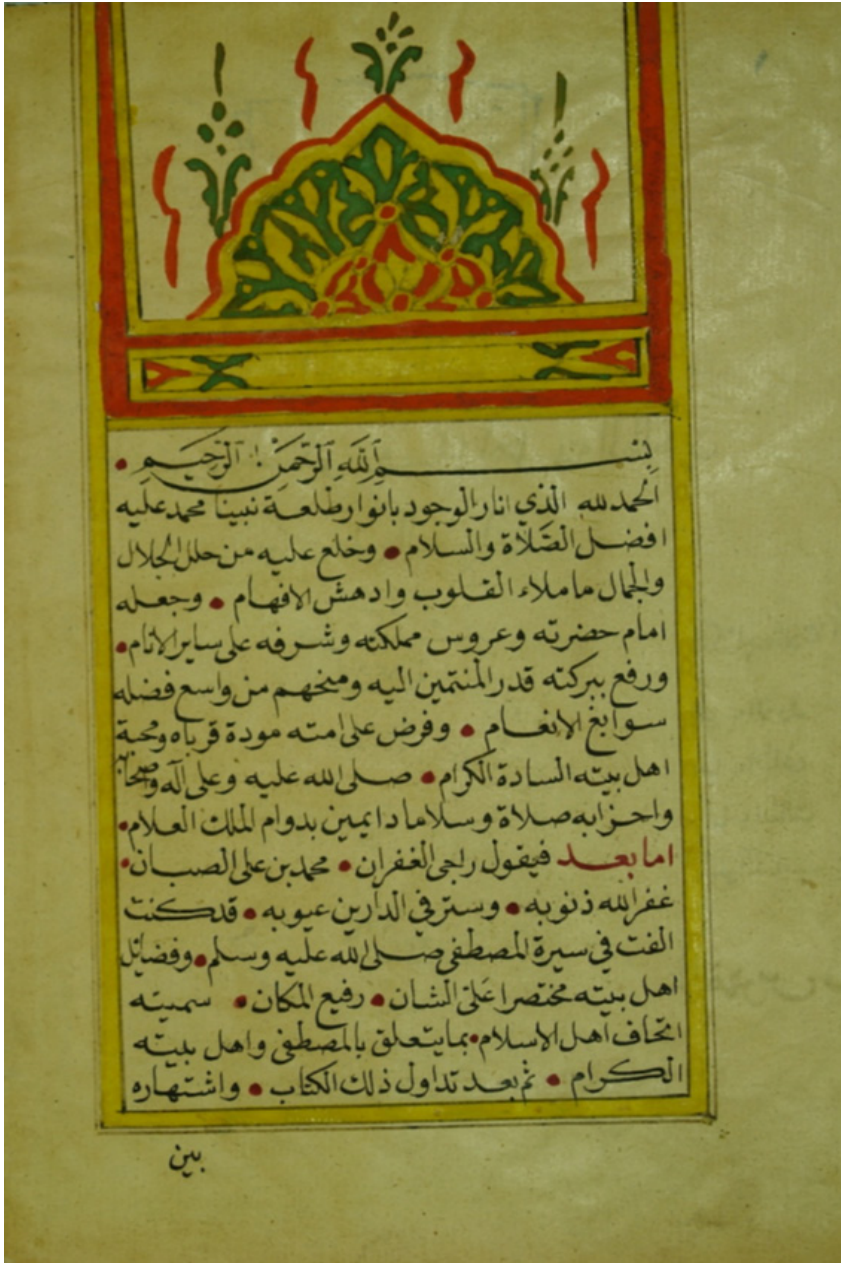 بسم الله الرحمن الرحيم •
الحمد لله الذي انار الوجود بانوار طلعة نبينا محمد عليه
افضل الصَّلاة والسلام • وخلع عليه من حلل الجلال
والجمال ما ملاء القلوب وادهش الافهام • وجعله
امام حضرته وعروس مملكته وشرفه على ساير الانام •
ورفع ببركته قدر المنتمين اليه ومنحهم من واسع فضله
سوابغ الانعام • وفرض على امته مودة قرباه ومحبة
اهل بيته السادة الكرام • صلى الله عليه وعلى آله وصحابته
واحزابه صلاة وسلاما دايمين بدوام الملك العلام •
اما بعد فيقول راجى الغفران • محمد بن على الصبان •
غفر الله ذنوبه • وستر في الدارين عيوبه • قد كنت
الفت في سيرة المصطفى صلى الله عليه وسلم • وفضايل
اهل بيته مختصرا عَلىّ الشان • رفيع المكان • سميته
اتحاف اهل الاسلام • بما يتعلق بالمصطفى واهل بيته
الكرام • ثم بعد تداول ذلك الكتاب • واشتهاره
بين